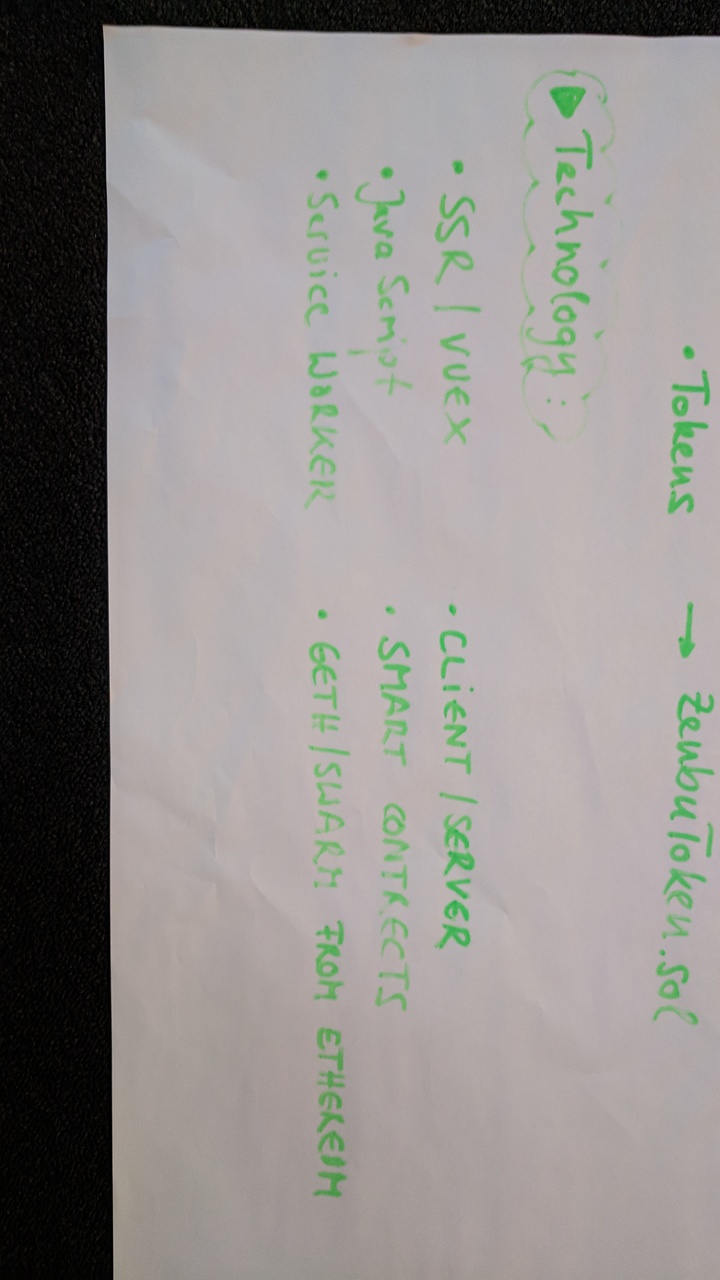 • Tokens → ZenbuToken.sol
▶ Technology:
• SSR / VUEX • CLIENT / SERVER
• Java Script • SMART CONTRECTS
• Service WORKER • GETH / SWARM FROM ETHEREUM